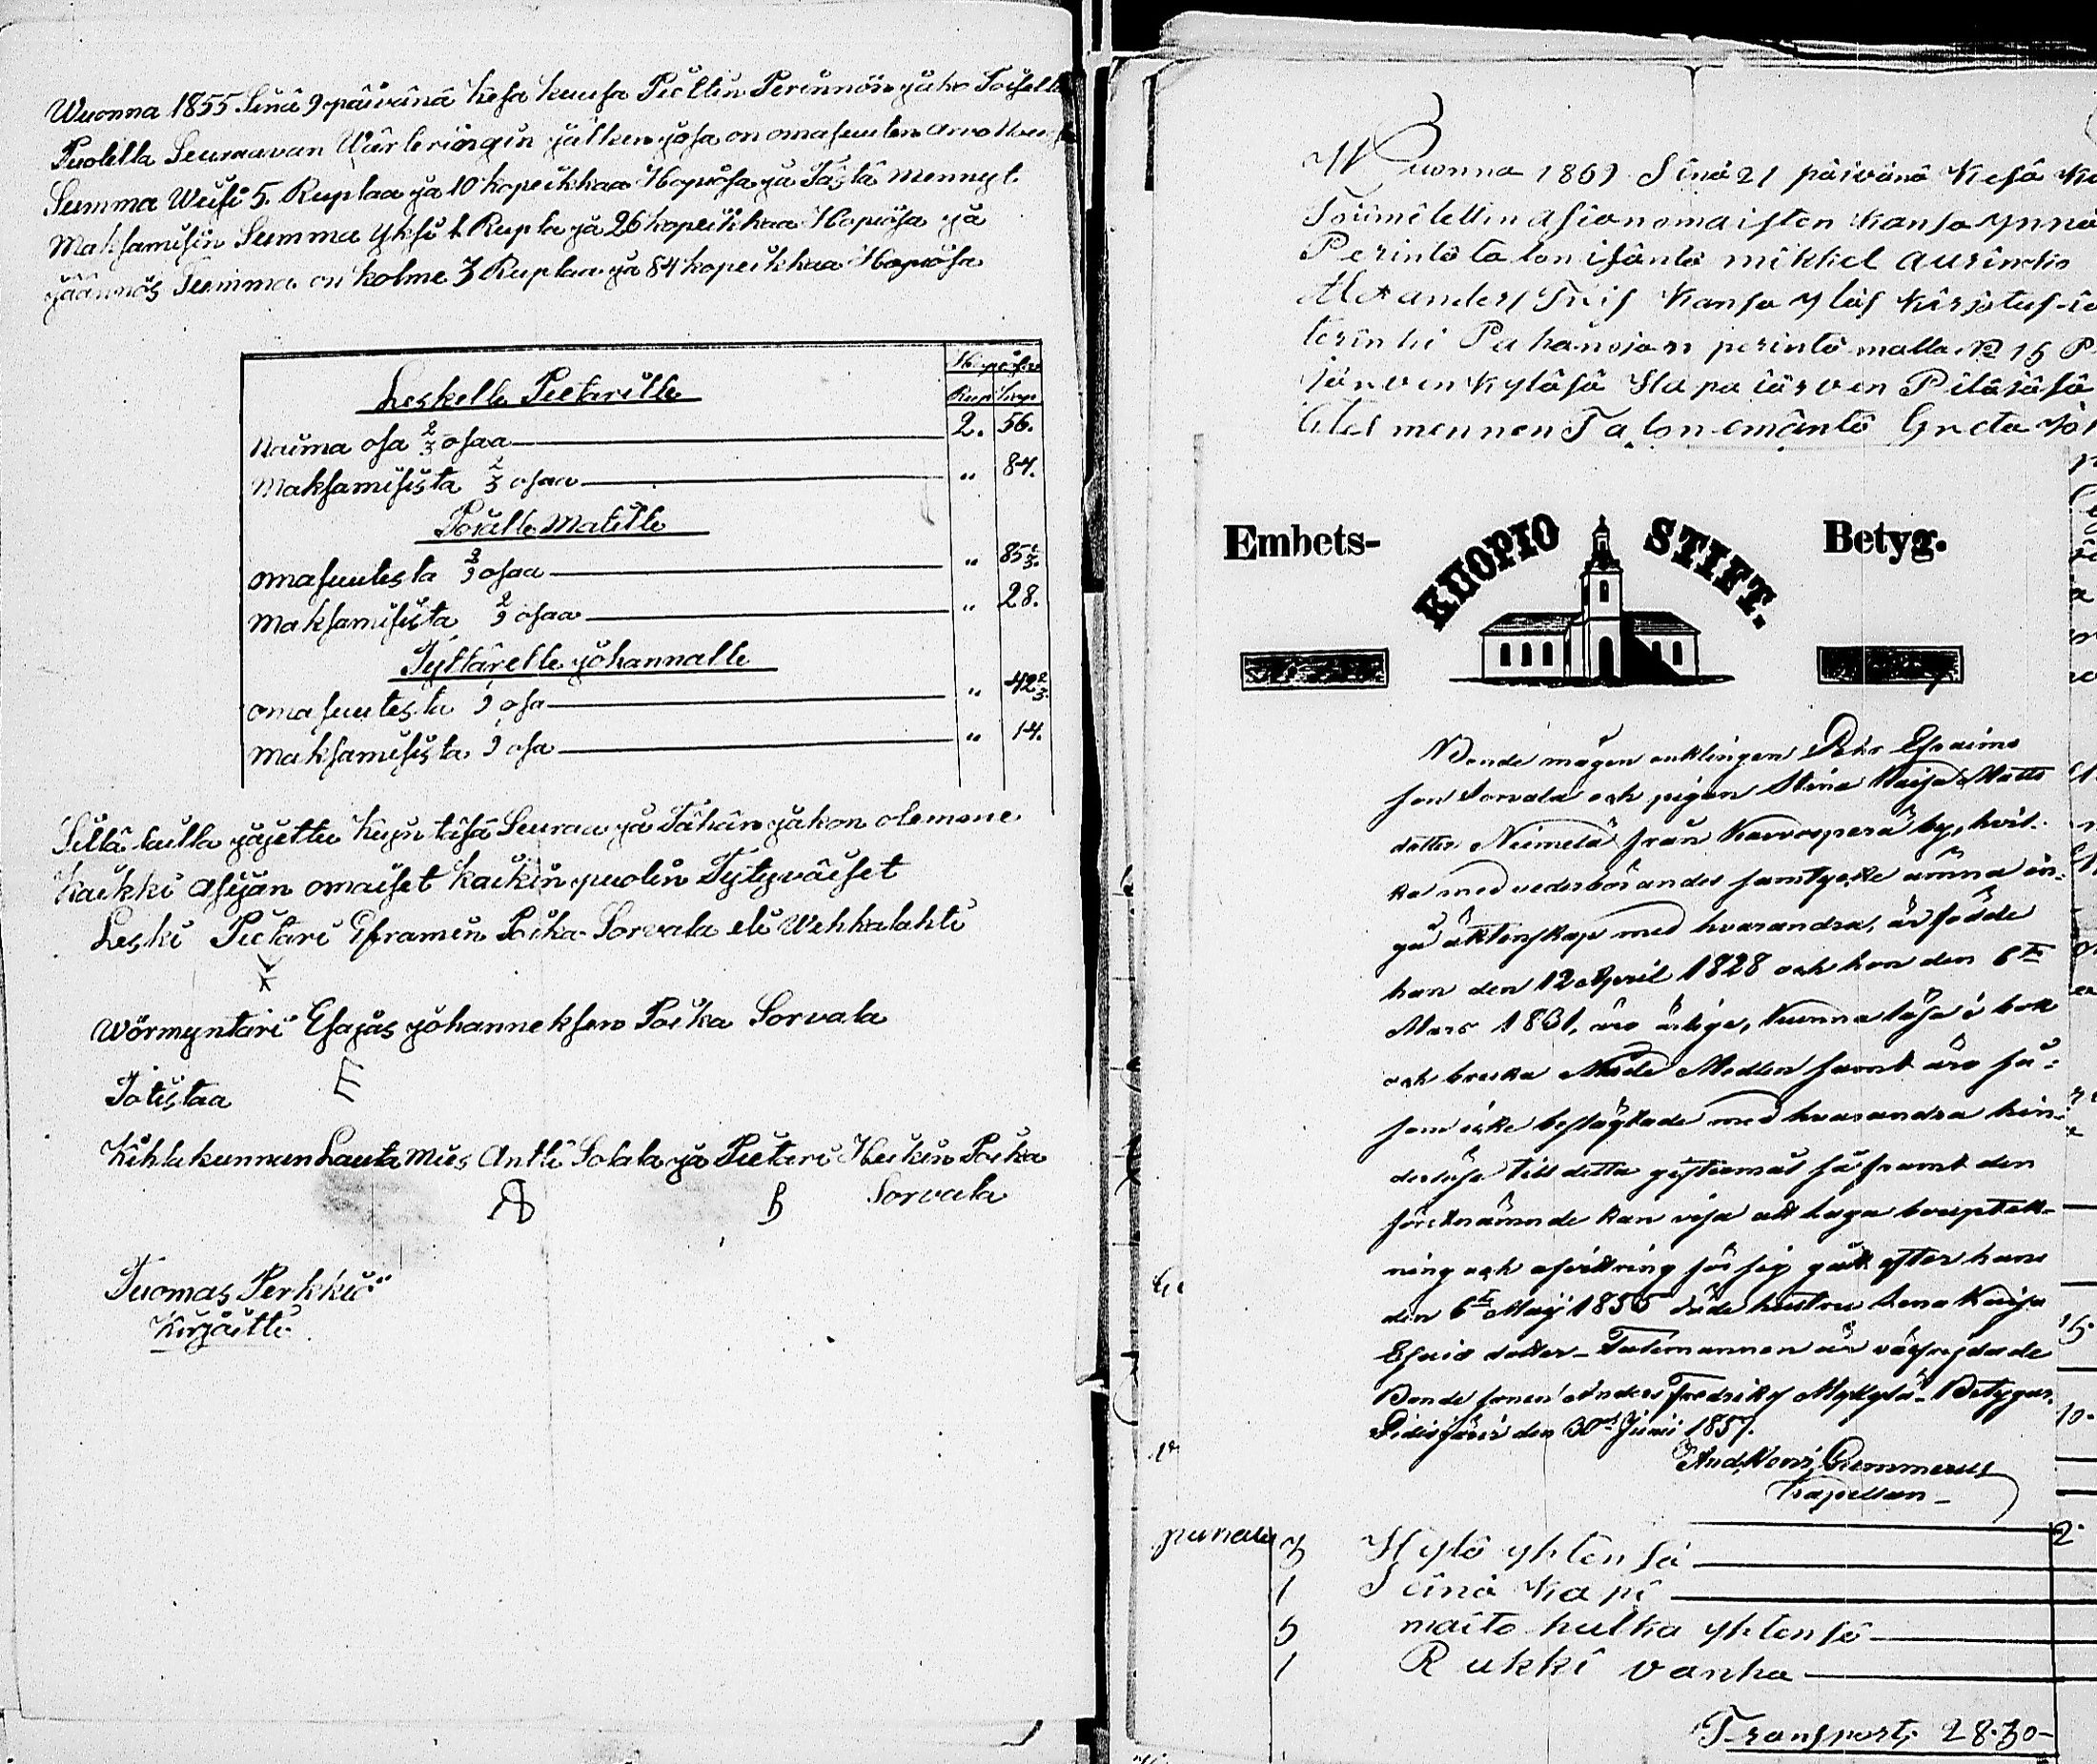 Wuonna 1855 Sinä 9 päivänä Kesa kuusa Piettin Perinnön jako Toisella
Puolella Seuraavan Wärleringin jälken josa on omasuuten arvo
Summa Wiisi 5. Ruplaa ja 10 kopeikkaa Hopiasa ja Tästä mennyt
Maksamisin Summa yksi 1. Rupla ja 26 kopeikkaa Hopiasa ja
jäännös Summa on kolme 3 Ruplaa ja 84 kopeikkaa Hopiasa
Hopiasa
Leskelle Pietarille
Rup kop
Naima osa 2/3 osaa 2. 56.
Maksamisista 2/3 osaa " 84.
Pojalle Matille
omasuutesta 2/9 osaa " 85 1/3.
Maksamisista 2/9 osaa " 28.
Tyttärelle johannalle
omasuutesta 1/9 osa " 42 2/3.
Maksamisista 1/9 osa " 14.
Sillä tavlla jajettu kuin täsä Seuraa ja Tähän jakon olemme
Kaikki asijan omaiset kaikin puolin Tytyväiset
Leski Pietari Eframin Poika Sorvala eli Wehkalahti
Wörmyntäri Esajas johanneksen Poika Sorvala
E
Totistaa
Kihlakunnan Lauta Mies Antti Solala ja Pietari Heikin Poika
Sorvala
Tuomas Perkkiö
Kirjoitti
Wuonna 1869 Sinä 21 päivänä Kesä
Toimitettin asianomaisten kansa ynnä
Perintö talon isäntä mikkel aurinko
Alexander Friis kansa ylös kirjotus
Pahanojan perintö malla No 15
järven kyläsä Hapajärven Pitäjäsä
Edes mennen Talon emäntä Greta
Embets-
KUOPIO STIFT.
Betyg.
Bonde mågen enklingen Pehr Efraims
son Sorvala och pigan Stina Kaisa Matts
dotter Niemelä från Karvosperä by, hvil-
ka med vederbörandes samtycke ämna in-
gå äktenskap med hvarandra, är födde
han den 12 April 1828 och hon den 6te
Mars 1831, äro ärlige, kunna läsa i bok
och bruka Nåde Medlen samt äro så-
som icke beslägtade med hvarandra hin-
derlöse till detta giftermål så framt den
förstnämnde kan visa att laga bouptek-
ning och afvittring för sig gått efter hans
den 6te Maji 1855 döde hustru Lena Kaisa
Esais dotter - Talemannen är välfrejdade
Bonde sonen Anders Fredriksson Mykylä. Betygar,
Pidisjärvi den 30de Junii 1857.
And. Konr. Gummerus
Kapellan
3 Hylö yhtensä
1 Seinä kapi
5 maito hulka yhtensä
1 Rukki vanha
Transport 28.30